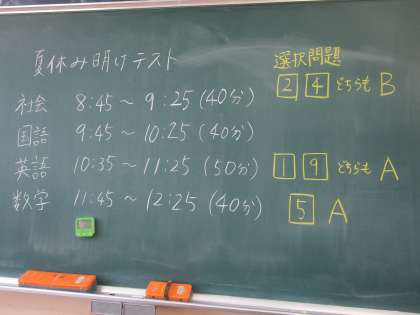 夏休み明けテスト 選択問題
社会 8:45～9:25(40分) 2 4 どちらも B
国語 9:45～10:25(40分)
英語 10:35～11:25(50分) 1 9 どちらも A
数学 11:45～12:25(40分) 5 A